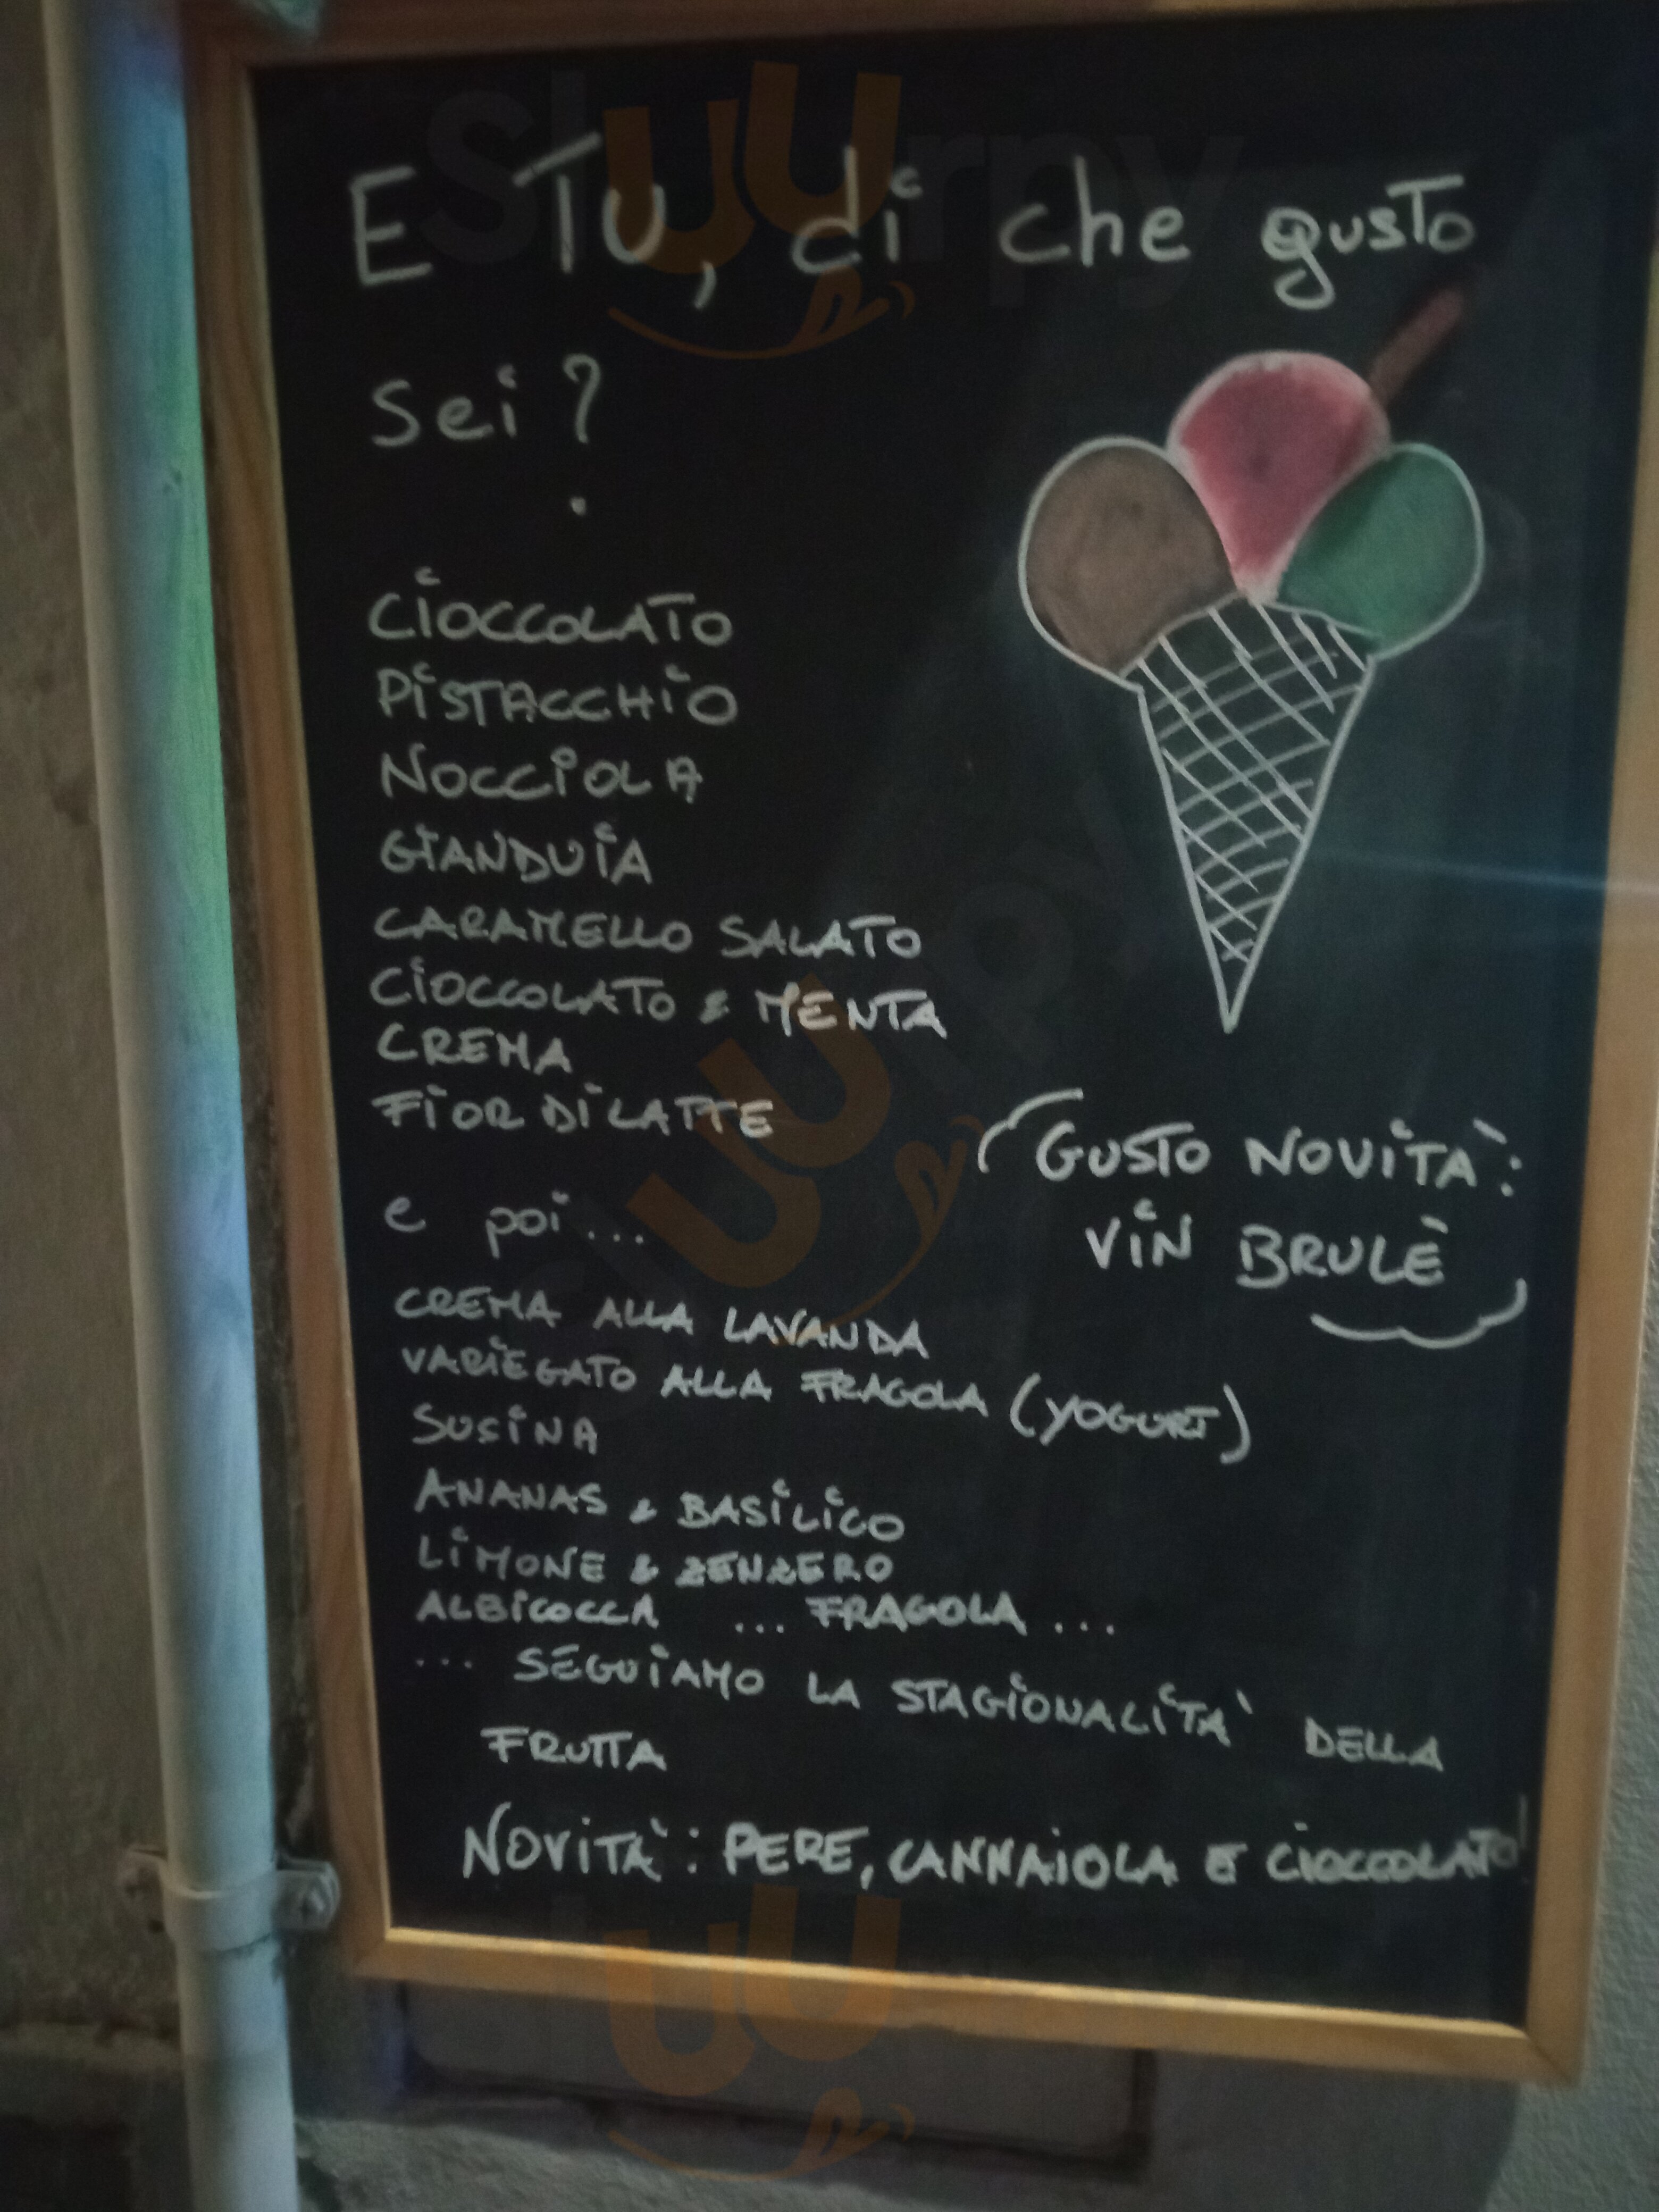 E TU, di che gusto
sei?
CIOCCOLATO
PISTACCHIO
NOCCIOLA
GIANDUIA
CARAMELLO SALATO
CIOCCOLATO & MENTA
CREMA
FIOR DI LATTE
GUSTO NOVITÀ:
VIN BRULÈ
e poi...
CREMA ALLA LAVANDA
VARIEGATO ALLA FRAGOLA (YOGURT)
SUSINA
ANANAS & BASILICO
LIMONE & ZENZERO
ALBICOCCA ... FRAGOLA ...
... SEGUIAMO LA STAGIONALITA' DELLA
FRUTTA
NOVITÀ: PERE, CANNAIOLA E CIOCCOLATO!
Sluurpy
Sluurpy
Sluurpy